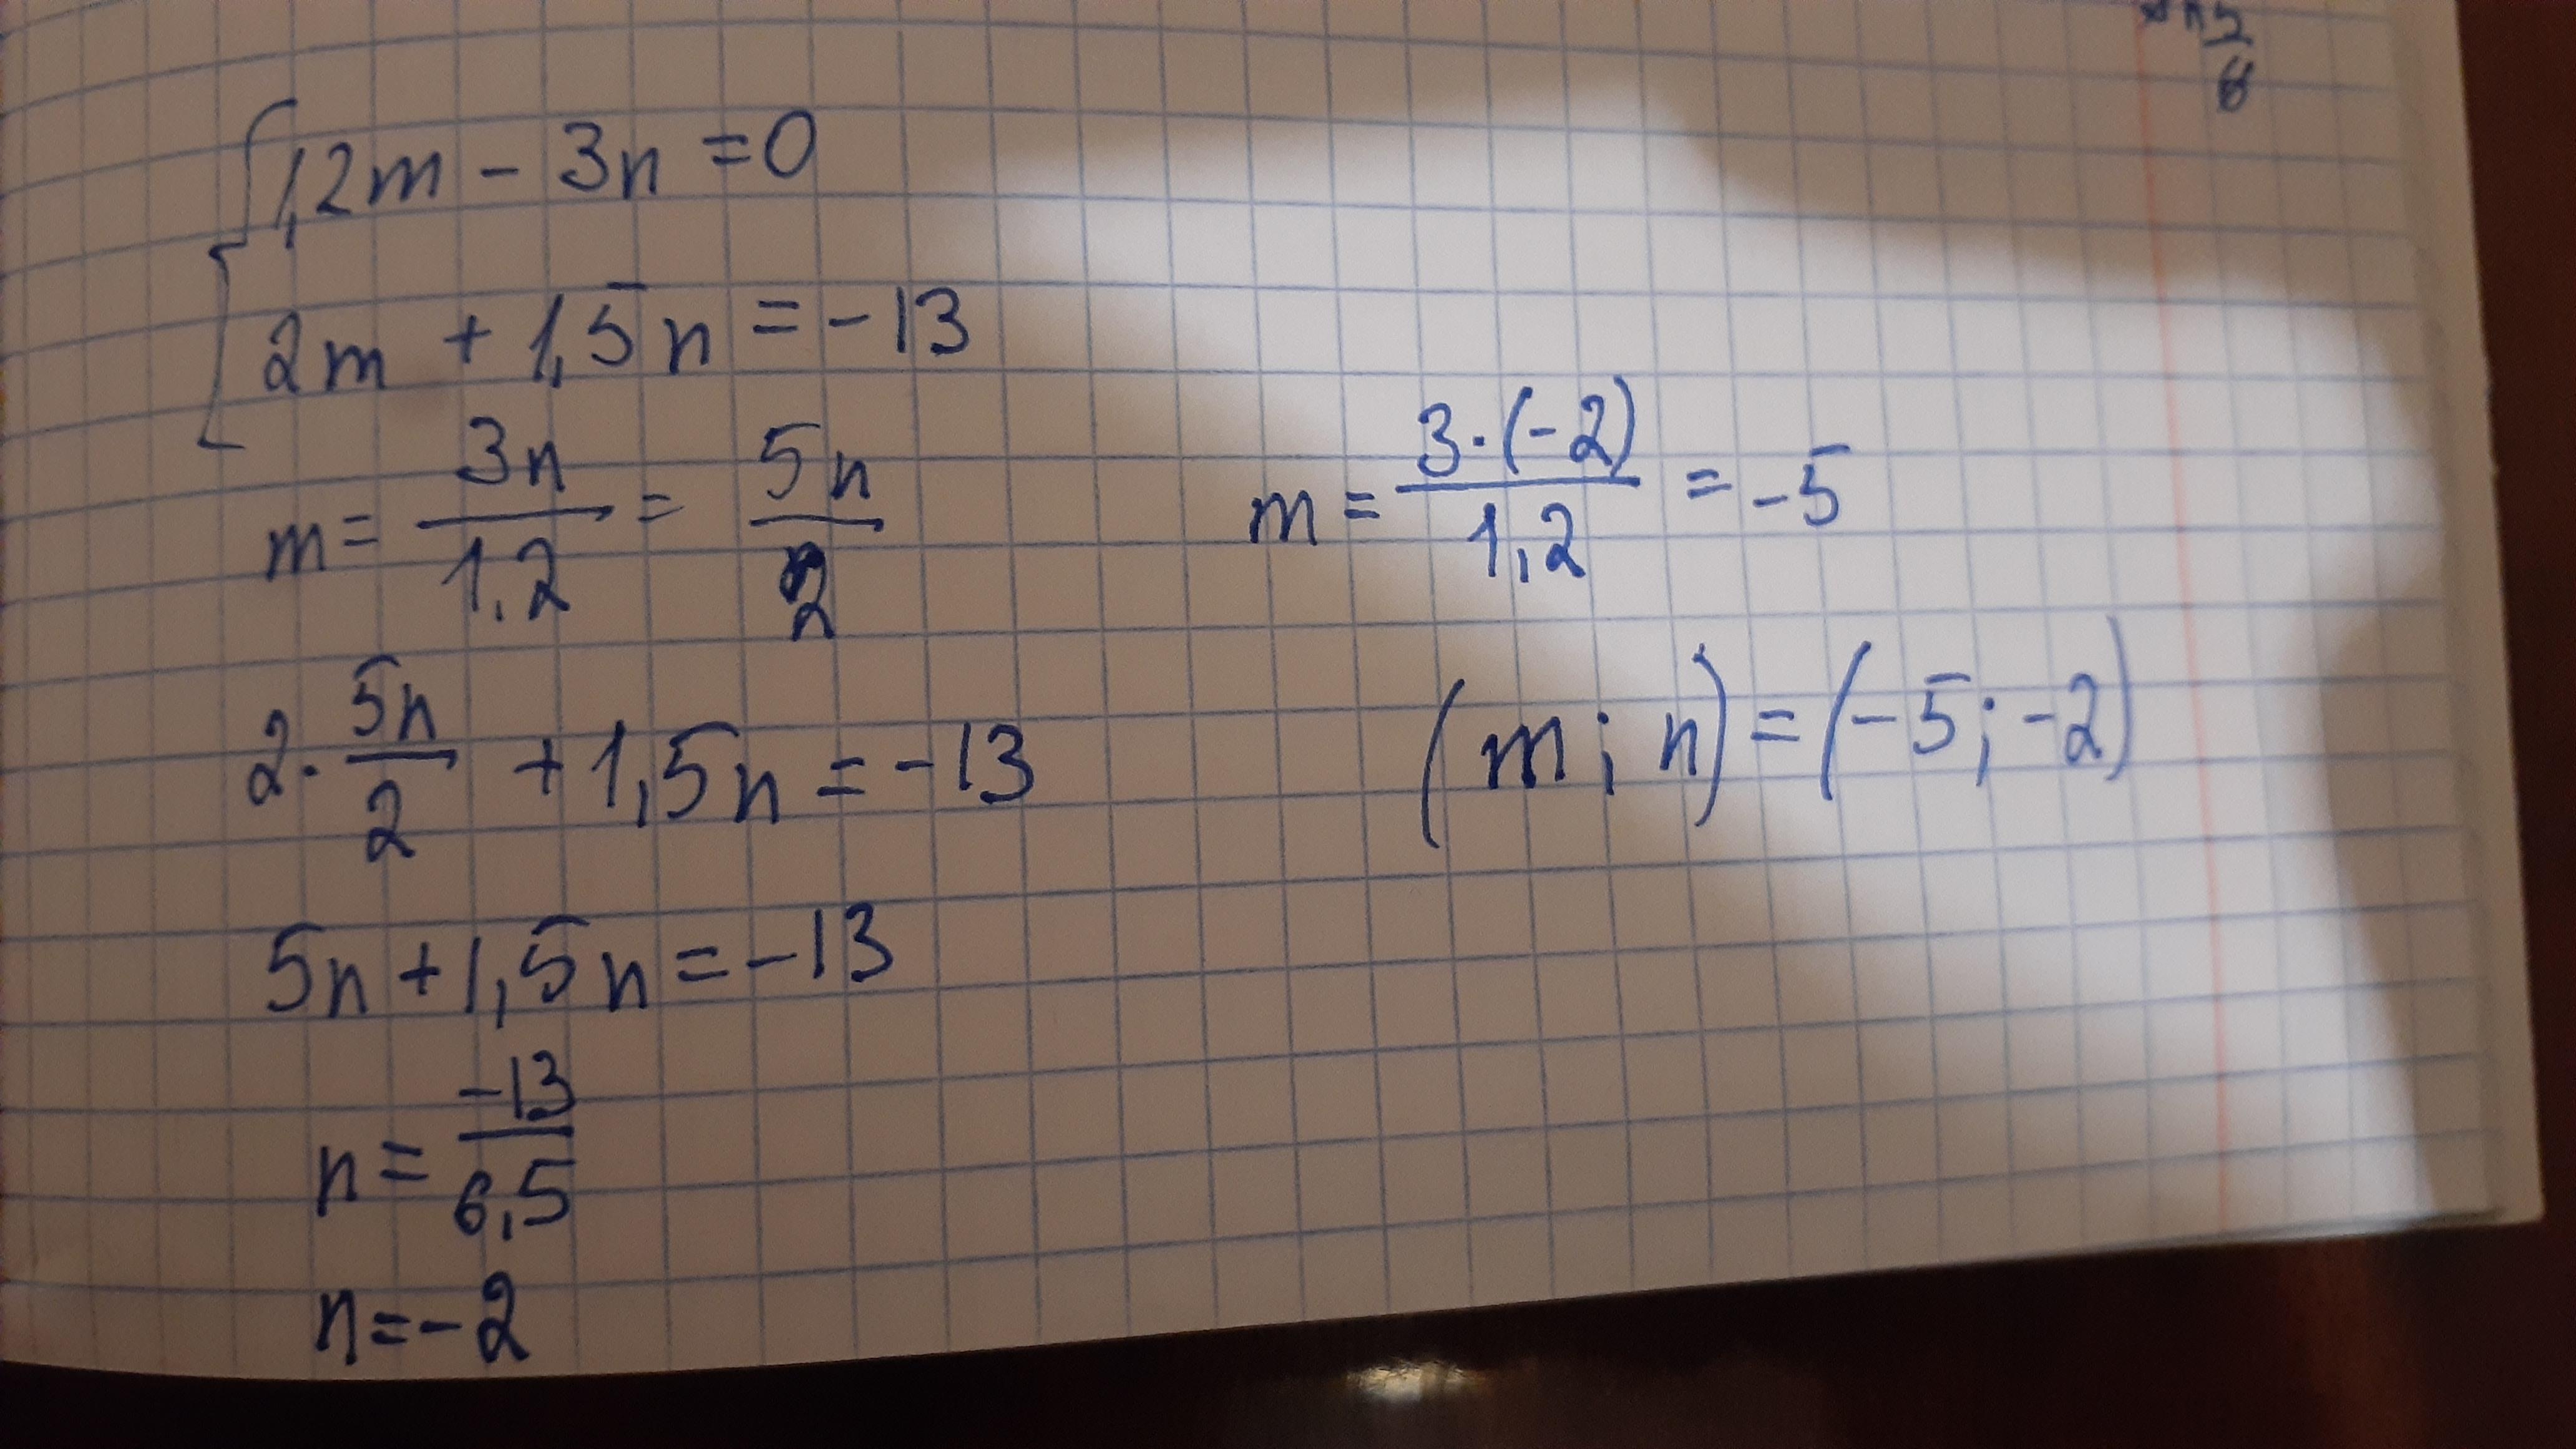 1,2m - 3n = 0
2m + 1,5n = -13
m = 3n/1,2 = 5n/2
2 · 5n/2 + 1,5n = -13
5n + 1,5n = -13
n = -13/6,5
n = -2
m = 3·(-2)/1,2 = -5
(m; n) = (-5; -2)